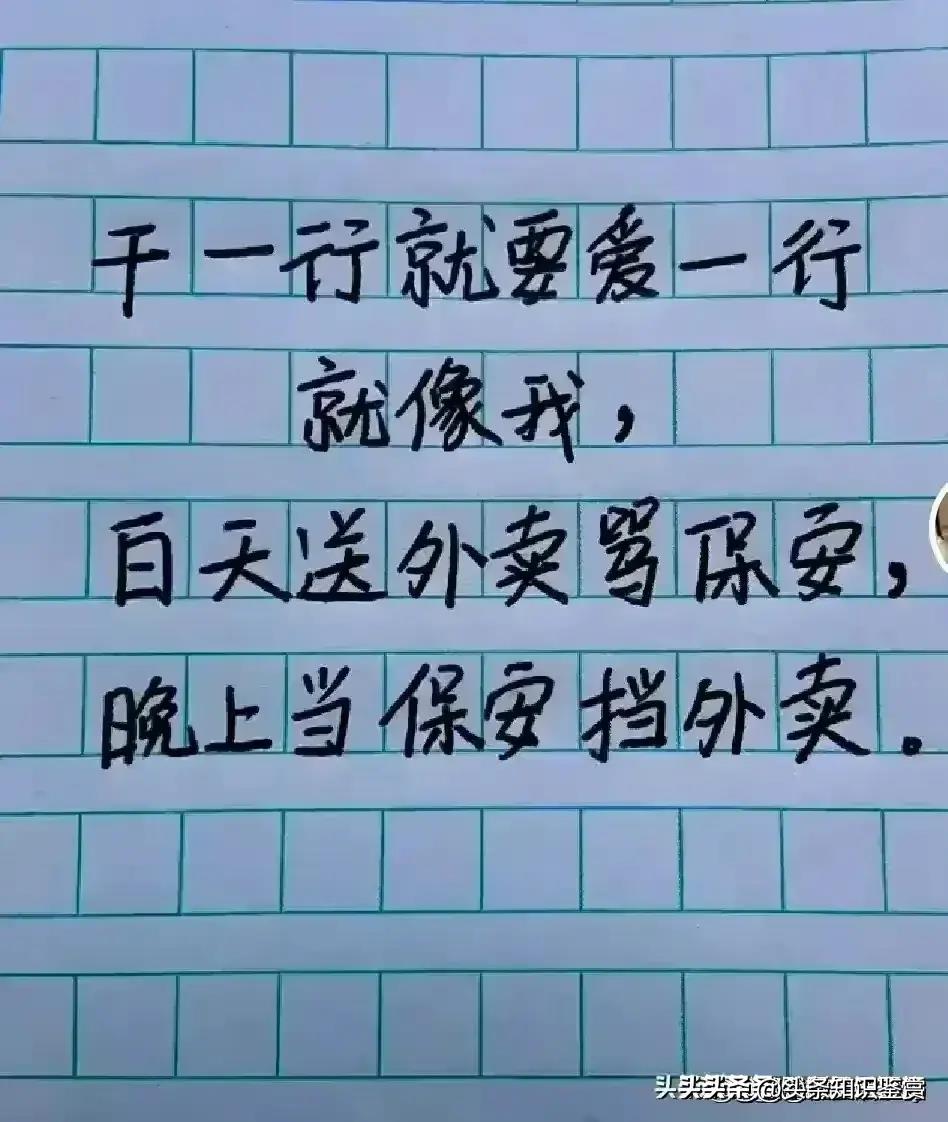 干一行就要爱一行
就像我，
白天送外卖骂保安，
晚上当保安挡外卖。
头条@头条知识鉴赏